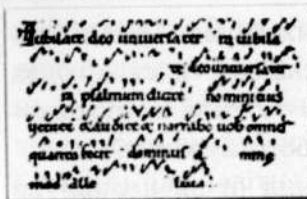 Iubilate deo uniuersa ter iubila
te deo uniuersa ter
psalmum dicite nomini eius
uenite & audite & narrabo uob omnes
quanta fecit dominus a nime
alle luia